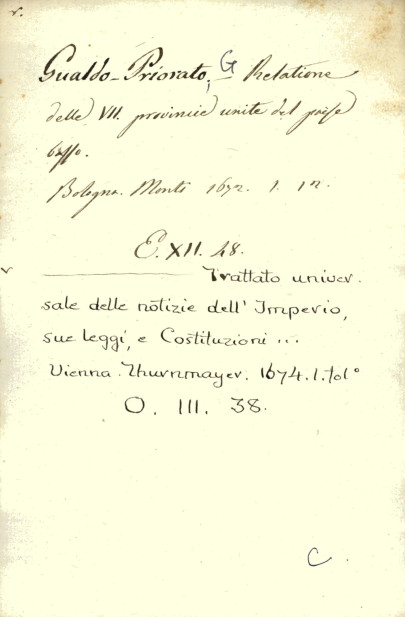 v.
Gualdo-Priorato, G Relatione
delle VII. provincie unite del paese
basso.
Bologna. Monti 1672. 1. 12.
E. XII. 48.
v Trattato univer.
sale delle notizie dell' Imperio,
sue leggi, e Costituzioni ...
Vienna. Thurnmayer. 1674. 1. fol°
O. III. 38.
C.